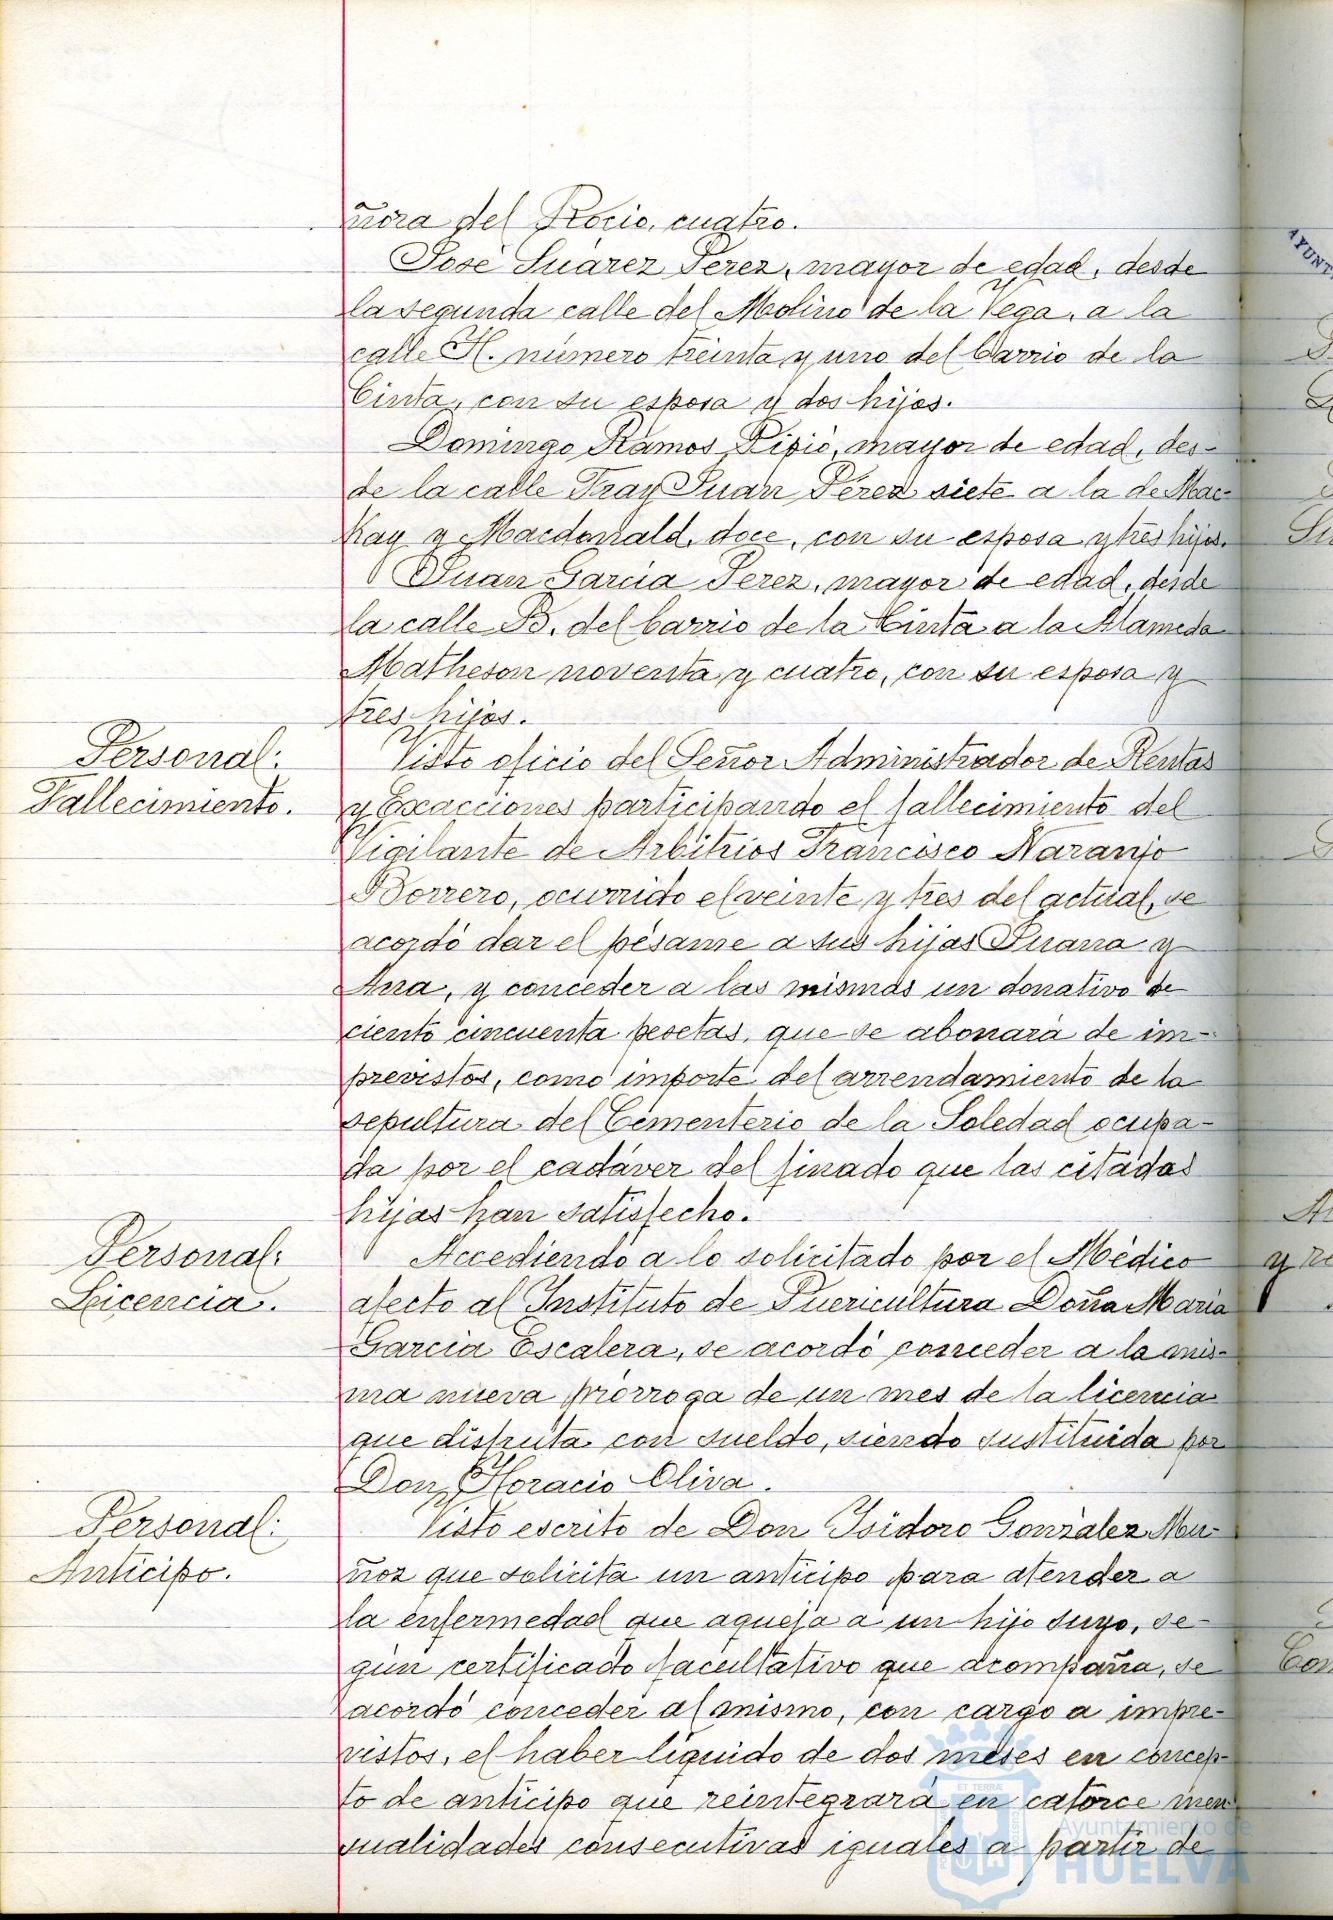 ñora del Rocio, cuatro.
José Suárez Perez, mayor de edad, desde
la segunda calle del Molino de la Vega, a la
calle H. número treinta y uno del barrio de la
Cinta, con su esposa y dos hijos.
Domingo Ramos Pipió, mayor de edad, des-
de la calle Fray Juan Pérez siete a la de Mac-
Kay y Macdonald, doce, con su esposa y tres hijos.
Juan Garcia Perez, mayor de edad, desde
la calle B. del barrio de la Cinta a la Alameda
Matheson noventa y cuatro, con su esposa y
tres hijos.
Personal:
Fallecimiento.
Visto oficio del Señor Administrador de Rentas
y Exacciones participando el fallecimiento del
Vigilante de Arbitrios Francisco Naranjo
Borrero, ocurrido el veinte y tres del actual, se
acordó dar el pésame a sus hijas Juana y
Ana, y conceder a las mismas un donativo de
ciento cincuenta pesetas, que se abonará de im-
previstos, como importe del arrendamiento de la
sepultura del Cementerio de la Soledad ocupa-
da por el cadáver del finado que las citadas
hijas han satisfecho.
Personal:
Licencia.
Accediendo a lo solicitado por el Médico
afecto al Instituto de Puericultura Doña Maria
Garcia Escalera, se acordó conceder a la mis-
ma nueva prórroga de un mes de la licencia
que disfruta con sueldo, siendo sustituida por
Don Horacio Oliva.
Personal:
Anticipo.
Visto escrito de Don Isidoro González Mu-
ñoz que solicita un anticipo para atender a
la enfermedad que aqueja a un hijo suyo, se-
gún certificado facultativo que acompaña, se
acordó conceder al mismo, con cargo a impre-
vistos, el haber líquido de dos meses en concep-
to de anticipo que reintegrará en catorce men
sualidades consecutivas iguales a partir de
Ayuntamiento de
HUELVA